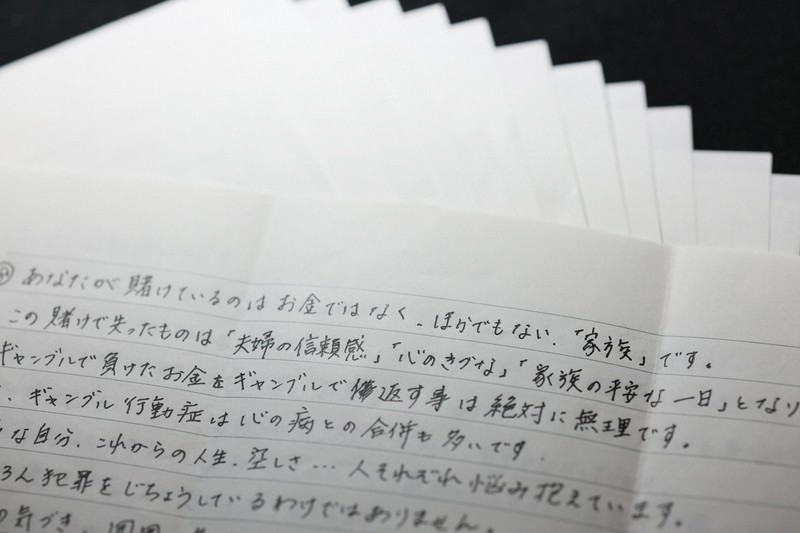 あなたが賭けているのはお金ではなく、ほかでもない、「家族」です。
この賭けで失ったものは「夫婦の信頼感」「心のきづな」「家族の平安な一日」となり
ギャンブルで負けたお金をギャンブルで 返す事は絶対に無理です。
ギャンブル行動症は心の病との合併も多いです。
な自分、これからの人生、空しさ…人それぞれ悩み抱えています。
ろん犯罪をじちょうしているわけではありません。
の気づき、